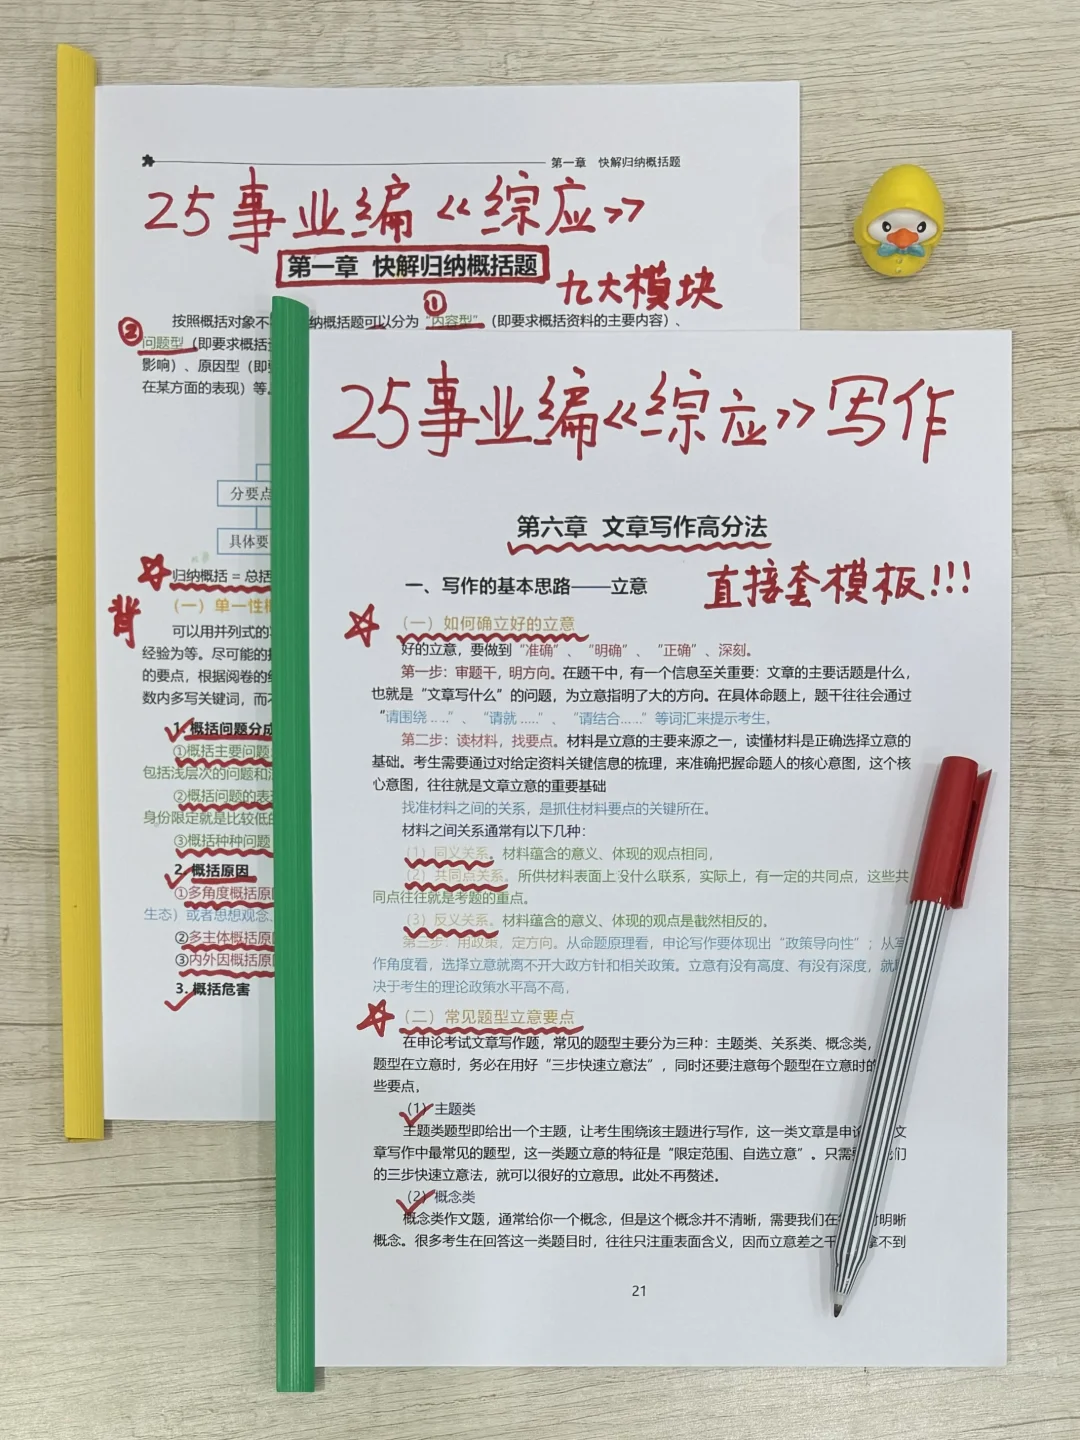 第一章 快解归纳概括题
25事业编《综应》
第一章 快解归纳概括题
九大模块
①
按照概括对象不 纳概括题可以分为“内容型”（即要求概括资料的主要内容）、
②
问题型（即要求概括
影响）、原因型（即
在某方面的表现）等。
分要点
具体要
归纳概括＝总括
背
（一）单一性概
可以用并列式的
经验为等。尽可能的
的要点，根据阅卷的
数内多写关键词，而
1. 概括问题分成
①概括主要问题
包括浅层次的问题和
②概括问题的表
身份限定就是比较低的
③概括种种问题
2. 概括原因
①多角度概括原
生态）或者思想观念、
②多主体概括原
③内外因概括原
3. 概括危害
25事业编《综应》写作
第六章 文章写作高分法
直接套模板!!!
一、写作的基本思路——立意
（一）如何确立好的立意
好的立意，要做到“准确”、“明确”、“正确”、深刻。
第一步：审题干，明方向。在题干中，有一个信息至关重要：文章的主要话题是什么，
也就是“文章写什么”的问题，为立意指明了大的方向。在具体命题上，题干往往会通过
“请围绕.....”、“请就.....”、“请结合......”等词汇来提示考生。
第二步：读材料，找要点。材料是立意的主要来源之一，读懂材料是正确选择立意的
基础。考生需要通过对给定资料关键信息的梳理，来准确把握命题人的核心意图，这个核
心意图，往往就是文章立意的重要基础
找准材料之间的关系，是抓住材料要点的关键所在。
材料之间关系通常有以下几种：
（1）同义关系。材料蕴含的意义、体现的观点相同，
（2）共同点关系。所供材料表面上没什么联系，实际上，有一定的共同点，这些共
同点往往就是考题的重点。
（3）反义关系。材料蕴含的意义、体现的观点是截然相反的。
第三步：用政策，定方向。从命题原理看，申论写作要体现出“政策导向性”；从写
作角度看，选择立意就离不开大政方针和相关政策。立意有没有高度、有没有深度，就
决于考生的理论政策水平高不高，
（二）常见题型立意要点
在申论考试文章写作题，常见的题型主要分为三种：主题类、关系类、概念类，
题型在立意时，务必在用好“三步快速立意法”，同时还要注意每个题型在立意时的
些要点，
（1）主题类
主题类题型即给出一个主题，让考生围绕该主题进行写作，这一类文章是申论 文
章写作中最常见的题型，这一类题立意的特征是“限定范围、自选立意”。只需 们
的三步快速立意法，就可以很好的立意思。此处不再赘述。
（2）概念类
概念类作文题，通常给你一个概念，但是这个概念并不清晰，需要我们在 明晰
概念。很多考生在回答这一类题目时，往往只注重表面含义，因而立意差之千 拿不到
21